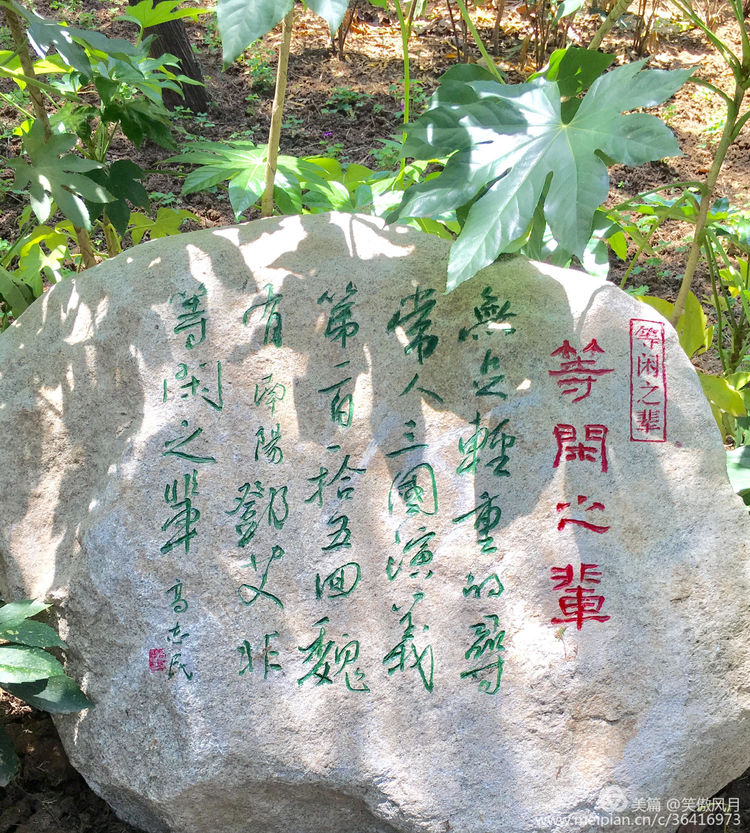 等闲之辈
等閑之輩
無足輕重的尋
常人三國演義
第一百一拾五回魏
有南陽鄧艾非
等閑之輩
高志民
美篇 @笑傲风月
www.meipian.cn/c/36416973